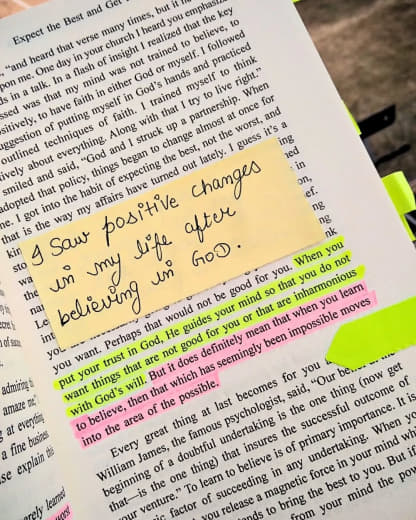 Expect the Best and Get
"and heard that verse many times, but it ha
pon me. One day in your church I heard you emphasize
ds in a talk. In a flash of insight I realized that the key
ssed was that my mind was not trained to believe, to
ositively, to have faith in either God or myself. I followed
uggestion of putting myself in God's hands and practiced
outlined techniques of faith. I trained myself to think
tively about everything. Along with that I try to live right."
smiled and said, "God and I struck up a partnership. When
adopted that policy, things began to change almost at once for
me. I got into the habit of expecting the best, not the worst, and
that is the way my affairs have turned out lately. I guess it's a
kin
sto
wa
the
wa
Le
I Saw positive changes
in my life after
believing in GOD.
you want. Perhaps that would not be good for you. When you
put your trust in God, He guides your mind so that you do not
want things that are not good for you or that are inharmonious
with God's will. But it does definitely mean that when you learn
to believe, then that which has seemingly been impossible moves
into the area of the possible.
Every great thing at last becomes for you
William James, the famous psychologist, said, "Our
beginning of a doubtful undertaking is the one thing (now get
that—is the one thing) that insures the successful outcome of
your venture." To learn to believe is of primary importance. It is
factor of succeeding in any undertaking. When
you release a magnetic force in your mind
to bring the best to you. But
from your mind the
admiring
amaze me
at everything
a fine business.
se explain this
arely learned